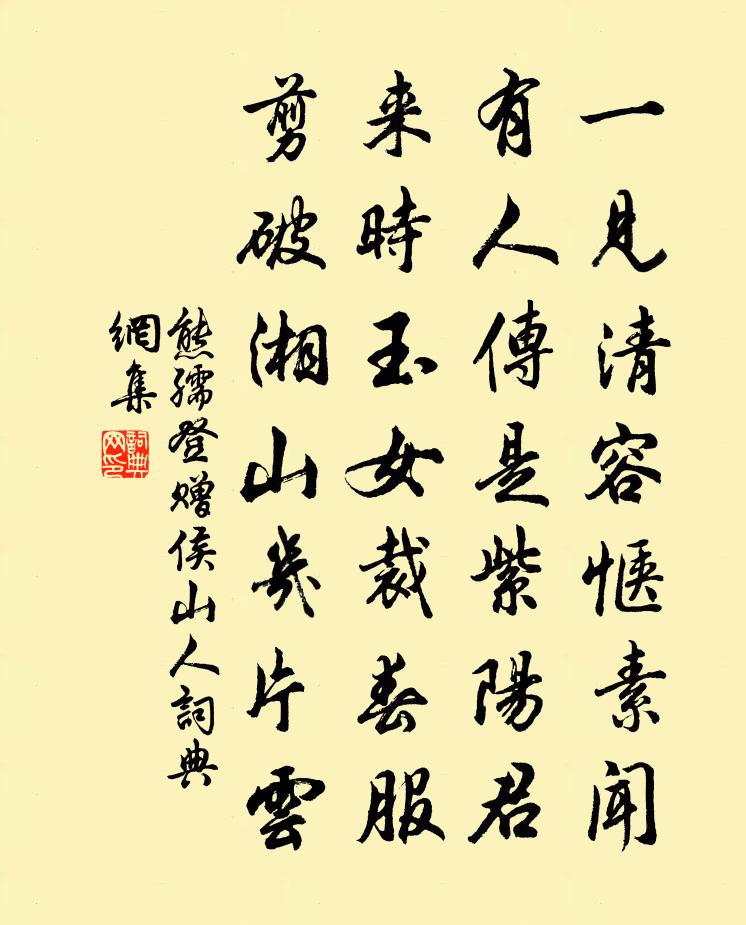 一見清容愜素聞
有人傳是紫陽君
来時玉女裁春服
剪破湘山幾片雲
熊孺登贈侯山人詞典
網集
詞典
网印